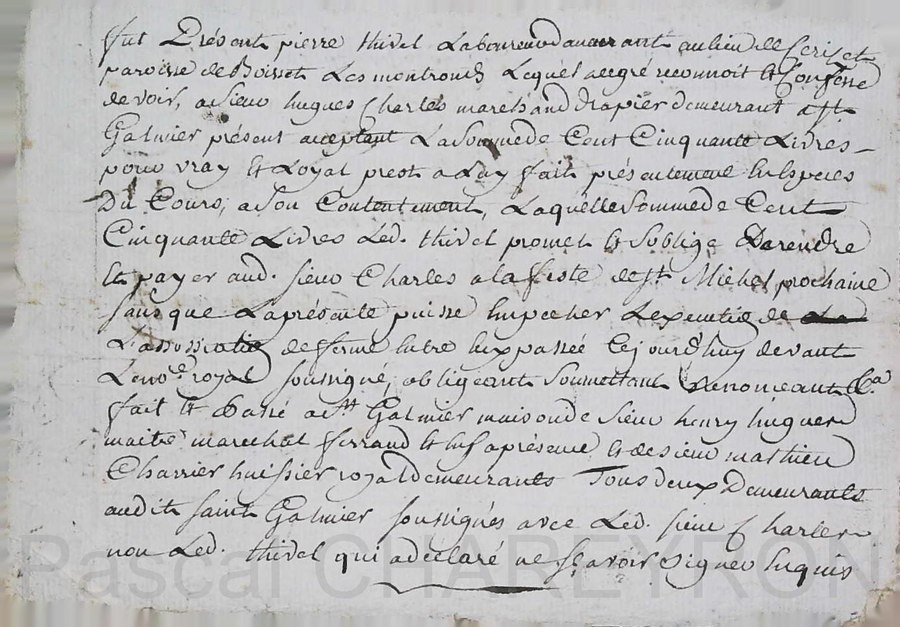 fut Présent pierre thivel Laboureur demeurant au lieu de Cerizet
paroisse de Boisset Les montrond Lequel de gré reconnoit et Confesse
devoir, a sieur hugues Charles marchand drapier demeurant a St
Galmier présent acceptant La Somme de Cent Cinquante Livres
pour vray et Loyal prest a Luy fait présentement en Especes
Du Cours, a Son Contentement, Laquelle Somme de Cent
Cinquante Livres Led. thivel promet et Soblige De rendre
et payer aud. sieur Charles a la feste de St Michel prochaine
sans que La présente puisse Empecher Lexecution de
L'association de ferme Entre Eux passée Cejourd'huy devant
Le no.re royal soussigné, obligeant Soumettant Renonceant &a
fait et Passé a St Galmier maison de sieur henry hugues
maitre marechal ferrand et En sa présence et de sieur mathieu
Charrier huissier royal demeurants Tous deux Demeurants
audit saint Galmier soussignés avec Led. sieur Charles
non Led. thivel qui a declaré ne sçavoir Signer Enquis
Pascal CHAREYRON